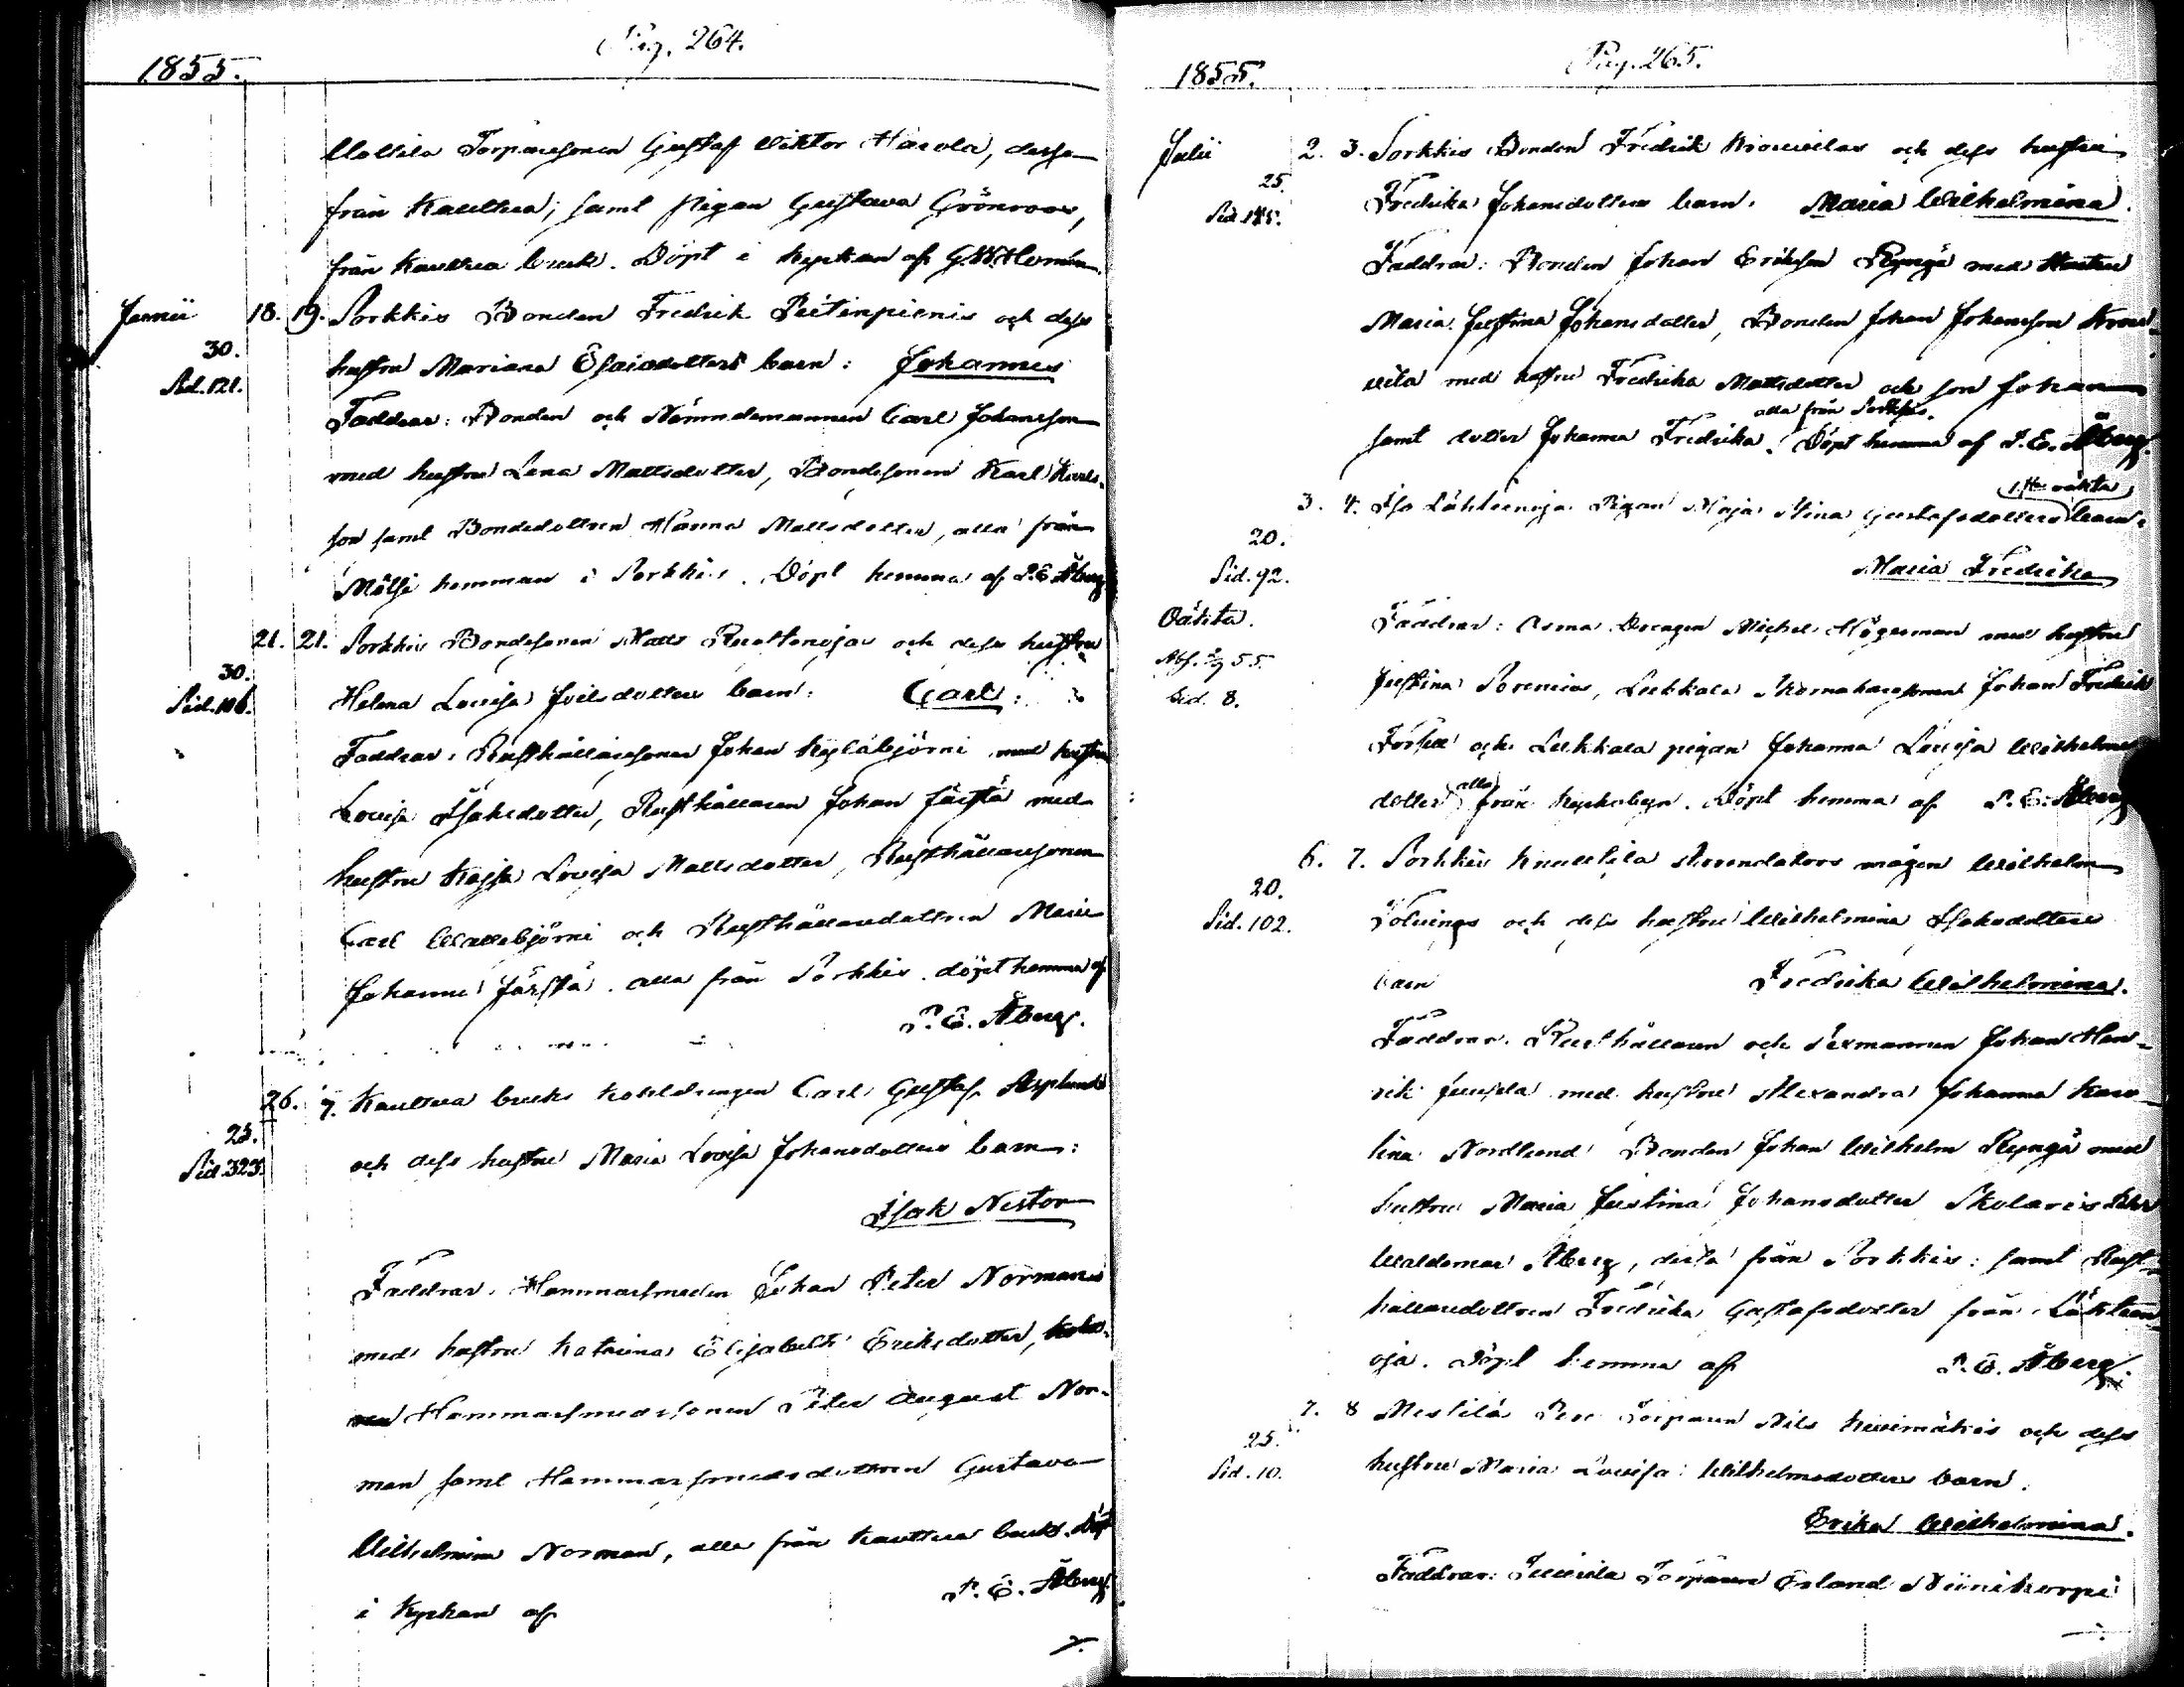 Pag. 264.
1855.
Uotila Torparesonen Gustaf Viktor Harola, desse
från Kauttua; samt pigan Gustava Grönroos,
från Kauttua bruk. Döpt i kyrkan af
Junii 18. 19. Sorkkis Bonden Fredrik och dess
30.
Sid. 121.
hustru Mariana Esaiadotters barn: Johannes
Faddrar: Bonden och Nämndemannen Carl Johansson
med hustru Lena Mattsdotter, Bondesonen Karl Karls-
son samt Bondedottren Hanna Mattsdotter, alla från
Mälsi hemman i Sorkkis. Döpt hemma af P. E. Åberg
21. 21. Sorkkis Bondesonen Matts Ruottanojas och dess hustru
30.
Sid. 106.
Helena Lovisa Joelsdotters barn: Carl:
Faddrar: Rusthållaresonen Johan Kyläbjörni med hustru
Lovisa Isaksdotter, Rusthållaren Johan Jårstå med
hustru Kajsa Lovisa Mattsdotter, Rusthållaresonen
Carl Wallebjörni och Rusthållaredottren Maria
Johanna Jårstå. alla från Sorkkis. döpt hemma af
P. E. Åberg.
26. 7. Kauttua bruks Kohldrengen Carl Gustaf Asplunds
25.
Sid. 323.
och dess hustru Maria Lovisa Johansdotters barn:
Isak Nestor
Faddrar: Hammarsmeden Johan Peter Norman
med hustru Katarina Elisabeth Eriksdotter,
Hammarsmedssonen Peter August Nor-
man samt Hammarsmedsdottren Gustava
Vilhelmina Norman, alla från Kauttua bruk. Döpt
i Kyrkan af P. E. Åberg.
Pag. 265.
1855.
Julii 2. 3. Sorkkis Bonden Fredrik Krouvilas och dess hustru
25.
Sid.
Fredrika Johansdotters barn. Maria Wilhelmina.
Faddrar: Bonden Johan Eriksson Ryngä med Hustru
Maria Justina Johansdotter, Bonden Johan Johansson Krou-
vila med hustru Fredrika Mattsdotter och son Johan
samt dotter Johanna Fredrika. alla från Sorkkis. Döpt hemma af P. E. Åberg.
3. 4. Iso Lähteenoja Pigan Maja Stina Gustafsdotters (1. oäkta) barn:
20.
Sid. 92.
Maria Fredrika
Oäkta.
Faddrar: Drengen Michel Högerman med hustru
Sid. 8.
Justina, Lukkala Johan Fredrik
Forsell och Lukkala pigan Johanna Lovisa Wilhelms
dotter alla från Kyrkobyn. Döpt hemma af P. E. Åberg
6. 7. Sorkkis Knuutila Arrendators mågen Wilhelm
20.
Sid. 102.
och dess hustru Wilhelmina Isaksdotters
barn Fredrika Wilhelmina.
Faddrar: Rusthållaren och Sexmannen Johan Hen-
rik Juusela med hustru Alexandra Johanna Karo-
lina Nordlund Bonden Johan Wilhelm Ryngä med
hustru Maria Justina Johansdotter Skolaris
Waldemar Åberg, desse från Sorkkis: samt Rust-
hållaredottren Fredrika Gustafsdotter från Lähteen-
oja. Döpt hemma af P. E. Åberg.
7. 8 Mestilä Torparen Nils Kuusimäkis och dess
25.
Sid. 10.
hustru Maria Lovisa Wilhelmsdotters barn.
Erika Wilhelmina.
Faddrar: Torparen Erland Niinikorpi